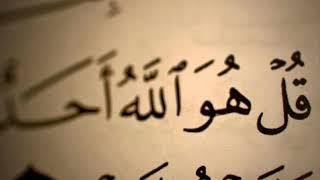 قُلْ هُوَ ٱللَّهُ أَحَدٌ